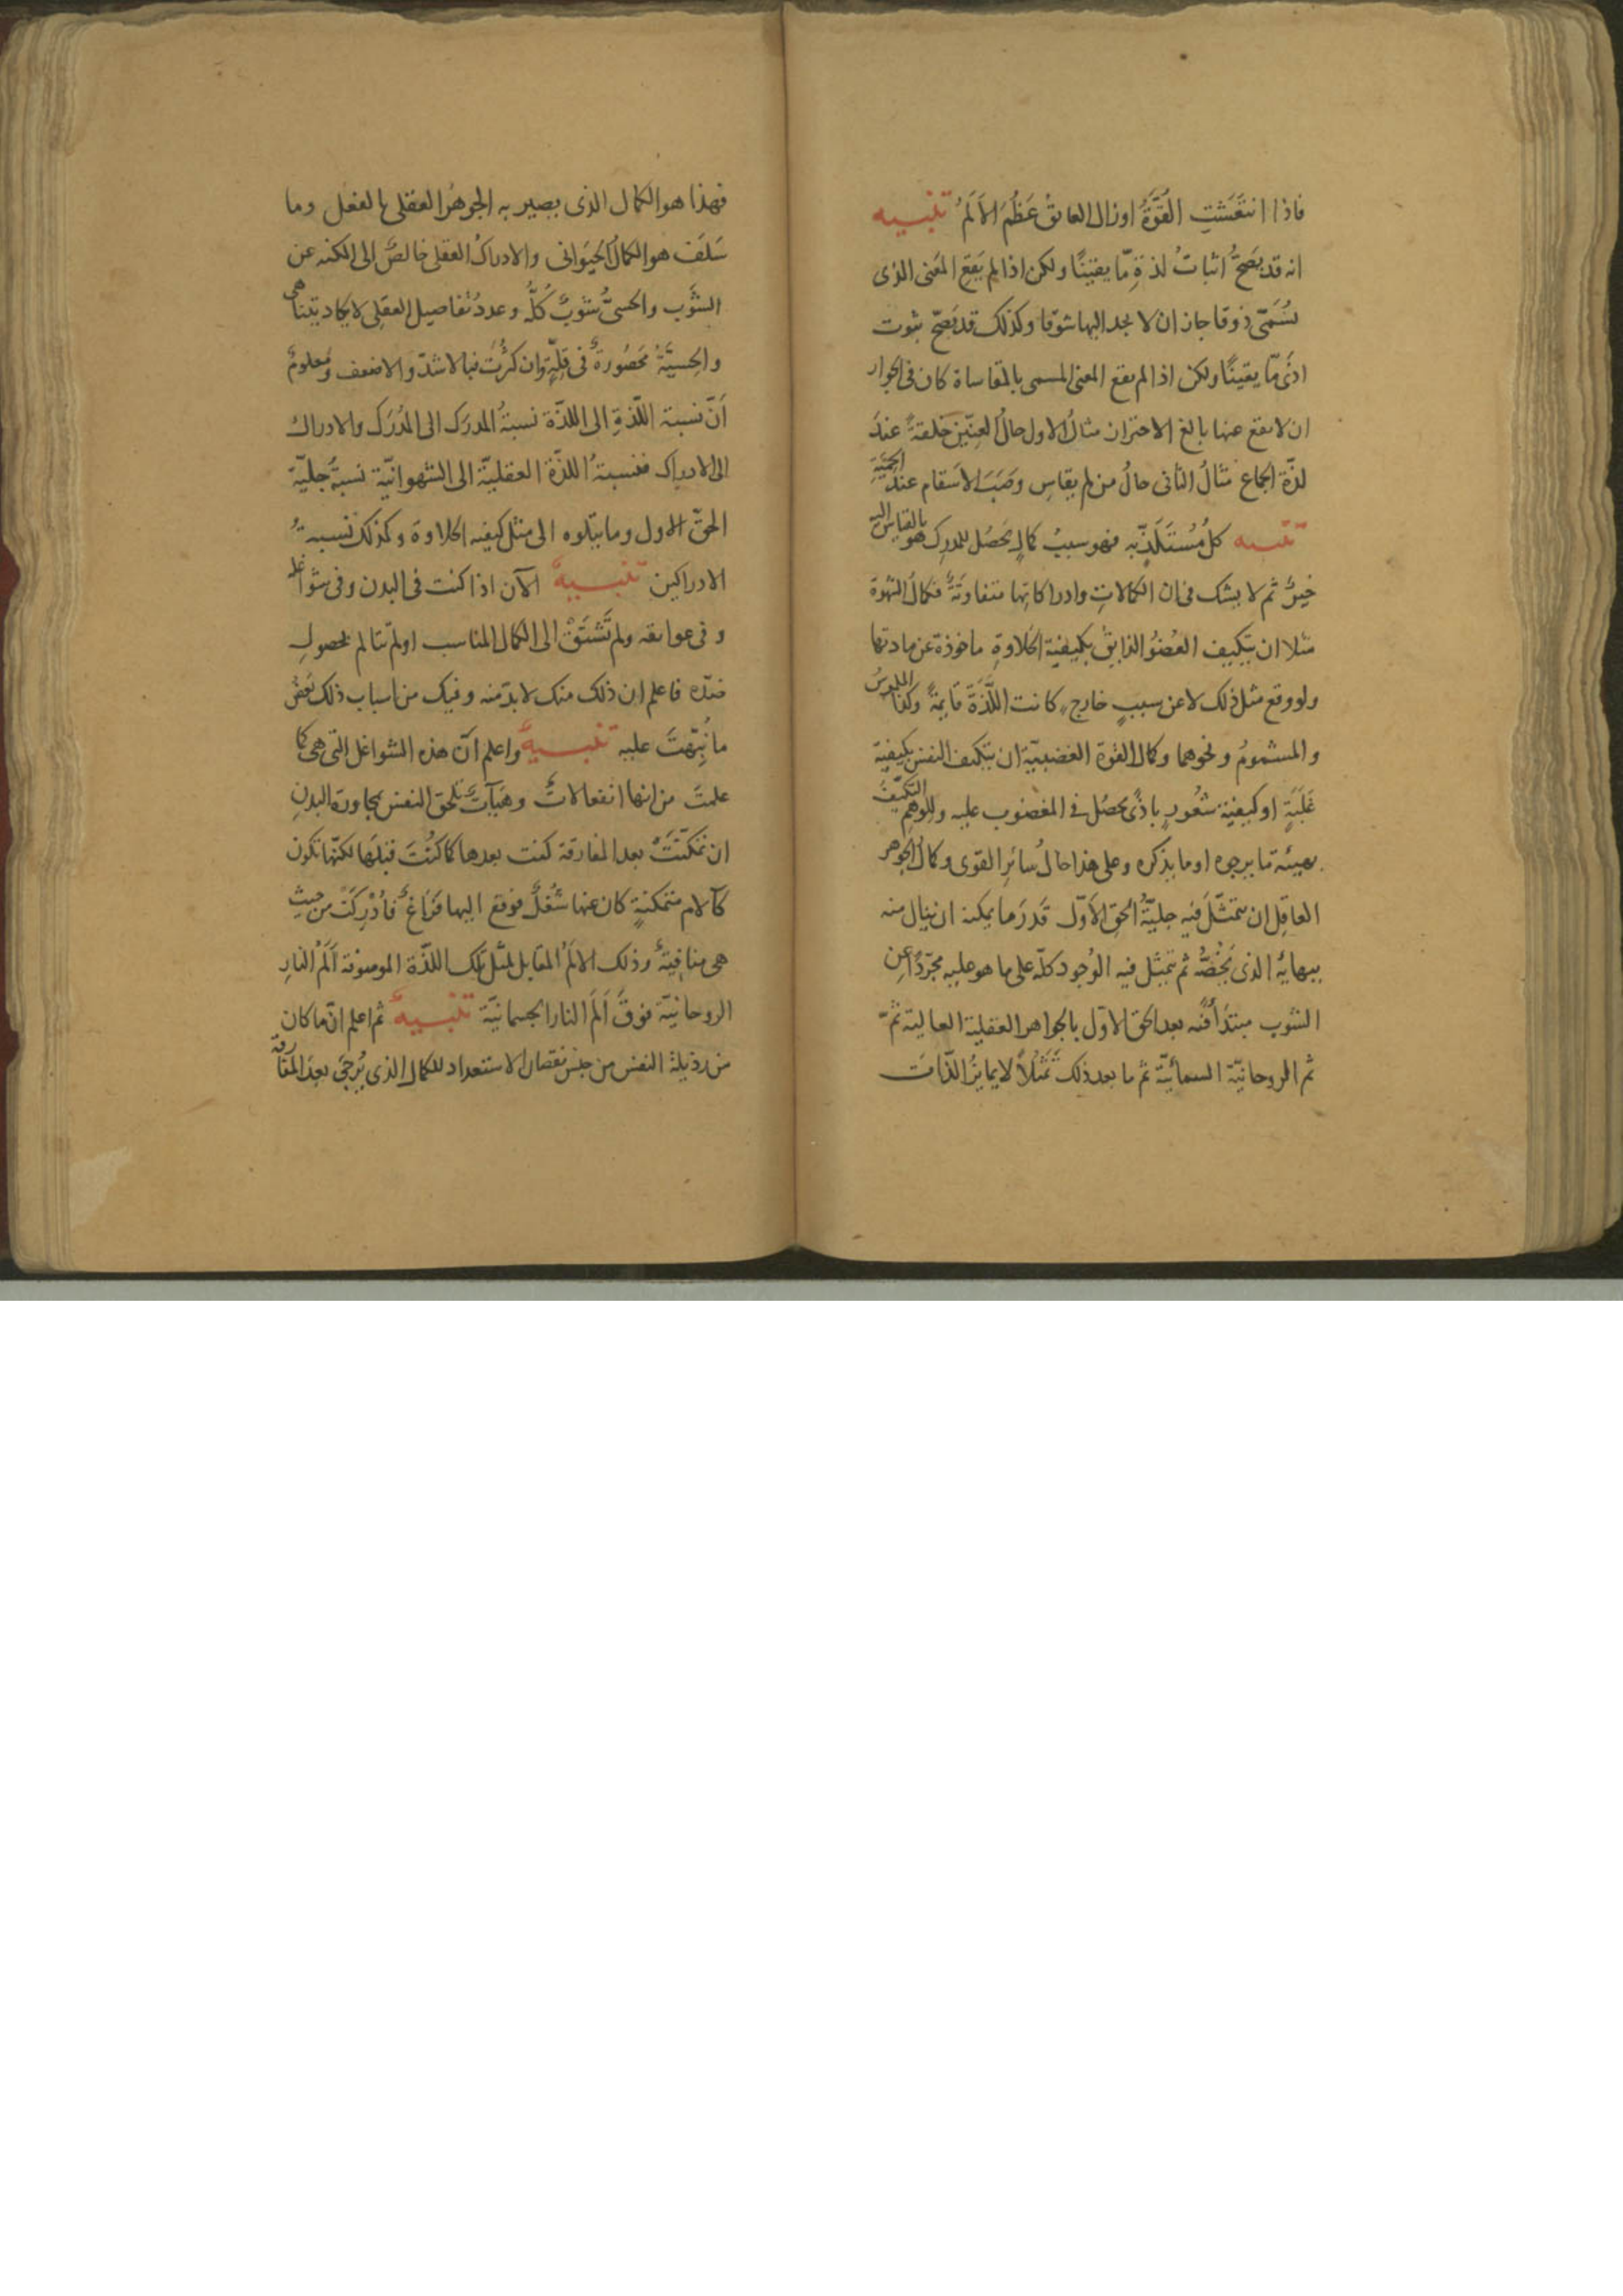 فاذا انتَعَشتِ القُوّةُ اوزال العايق عَظُمَ الاَلَمُ تنبيه
انه قد يَصَحّ اثباتُ لذةٍ مّا يقينًا ولكن اذا لم يَقَع المعنى الذى
يُسَمّى ذوقا جاز ان لا يجد اليها شوقا وكذلك قد يَصحّ ثبوت
اذًى مّا يقينًا ولكن اذا لم يقع المعنى المسمى بالمقاساة كان فى الجواز
ان لا يقع عنها بالغ الاحتراز مثالُ الاول حالُ العِنّين خلقةً عندَ
لذّة الجماع مثالُ الثانى حالُ من لم يقاسِ وَصَبَ الاسقام عندَ الحِمْيَةِ
تنبيه كلُّ مُسْتَلَذٍّ به فهو سببُ كمالٍ يَحصُل للمدرِك هو بالقياس اليه
خيرٌ ثم لا يشك فى ان الكمالاتِ وادراكاتها متفاوتةٌ فكمالُ الشهوة
مثلا ان يتكيف العُضوُ الذايق بكيفية الحلاوةِ ماخوذة عن مادتها
ولو وقع مثل ذلك لا عن سببٍ خارجٍ كانت اللَّذّةَ قايمةً وكذا الملموسُ
والمشمومُ ونحوهما وكمال القوة الغضبيّة ان يتكيف النفس بكيفية
غَلَبَةٍ او كيفية شعُورٍ باذًى يحصُل فى المغضوب عليه وللوهم التكيّفُ
بهيئة ما يرجوه اوما يذكره وعلى هذا حالُ سائرِ القوى وكمالُ الجوهر
العاقِلِ ان يتمثّلَ فيه جليّةُ الحقِ الاَوّل قَدرَ ما يمكنه ان ينال منه
ببهائه الذى يَخُصُّه ثم يتمثل فيه الوُجود كلّه على ما هو عليه مجرّدًا عن
الشوب مبتدَأً فيه بعد الحق الاوّل بالجواهر العقلية العالية ثمّ
ثم الروحانيّة السمائيّة ثم ما بعد ذلك تَمَثُّلاً لا يمايزُ الذّاتَ
فهذا هو الكمال الذى يصير به الجوهرُ العقلى بالفعل وما
سَلَفَ هو الكمالُ الحيَوانى والادراكُ العقلى خالصٌ الى الكنه عن
الشَّوب والحسىُّ شوبٌ كُلُّه وعددُ تفاصيل العقلى لا يكاد يتناهى
والحِسيّةُ مَحصُورةٌ فى قِلّةٍ وان كثُرتْ فبالاشدّ والاضعف ومعلومٌ
اَنّ نسبة اللّذةِ الى اللذّة نسبةُ المدرَك الى المُدرَك والادراك
الى الادراك فنسبةُ اللذّة العقليّة الى الشهوانيّة نسبةُ جليّة
الحقّ الاول وما يتلوه الى مثل كيفيه الحلاوة وكذلك نسبةُ
الادراكين تنبيهٌ الآن اذا كنت فى البدن وفى شواغله
وفى عوايقه ولم تَشتَقْ الى الكمال المناسب اولم تتالم بحصولِ
ضدّه فاعلم ان ذلك منك لا بدّ منه وفيك من اسباب ذلك بَعضُ
ما نُبِّهتَ عليه تنبيهٌ واعلم اَنّ هذه الشواغل التى هى كما
علمتَ من انها انفعالاتٌ وهَيآتٌ تلحق النفس بمجاورة البدنِ
ان تمكّنَتْ بعد المفارقة كنت بعدها كما كنتَ قبلَها لكنّها تكون
كآلام متمكنةٍ كان عنها شُغلٌ فوقع اليها فَراغٌ فاُدْرِكَتْ من حيثِ
هى منافيةٌ وذلك الالَمُ المقابل لمثل تلك اللذّة الموصوفة اَلَمُ النارِ
الروحانيّة فوقَ اَلَم النار الجسمانيّة تنبيهٌ ثم اعلم انّ ما كان
من رذيلة النفس من جنس نقصان الاستعداد للكمال الذى يُرجَى بعدَ المفارقة